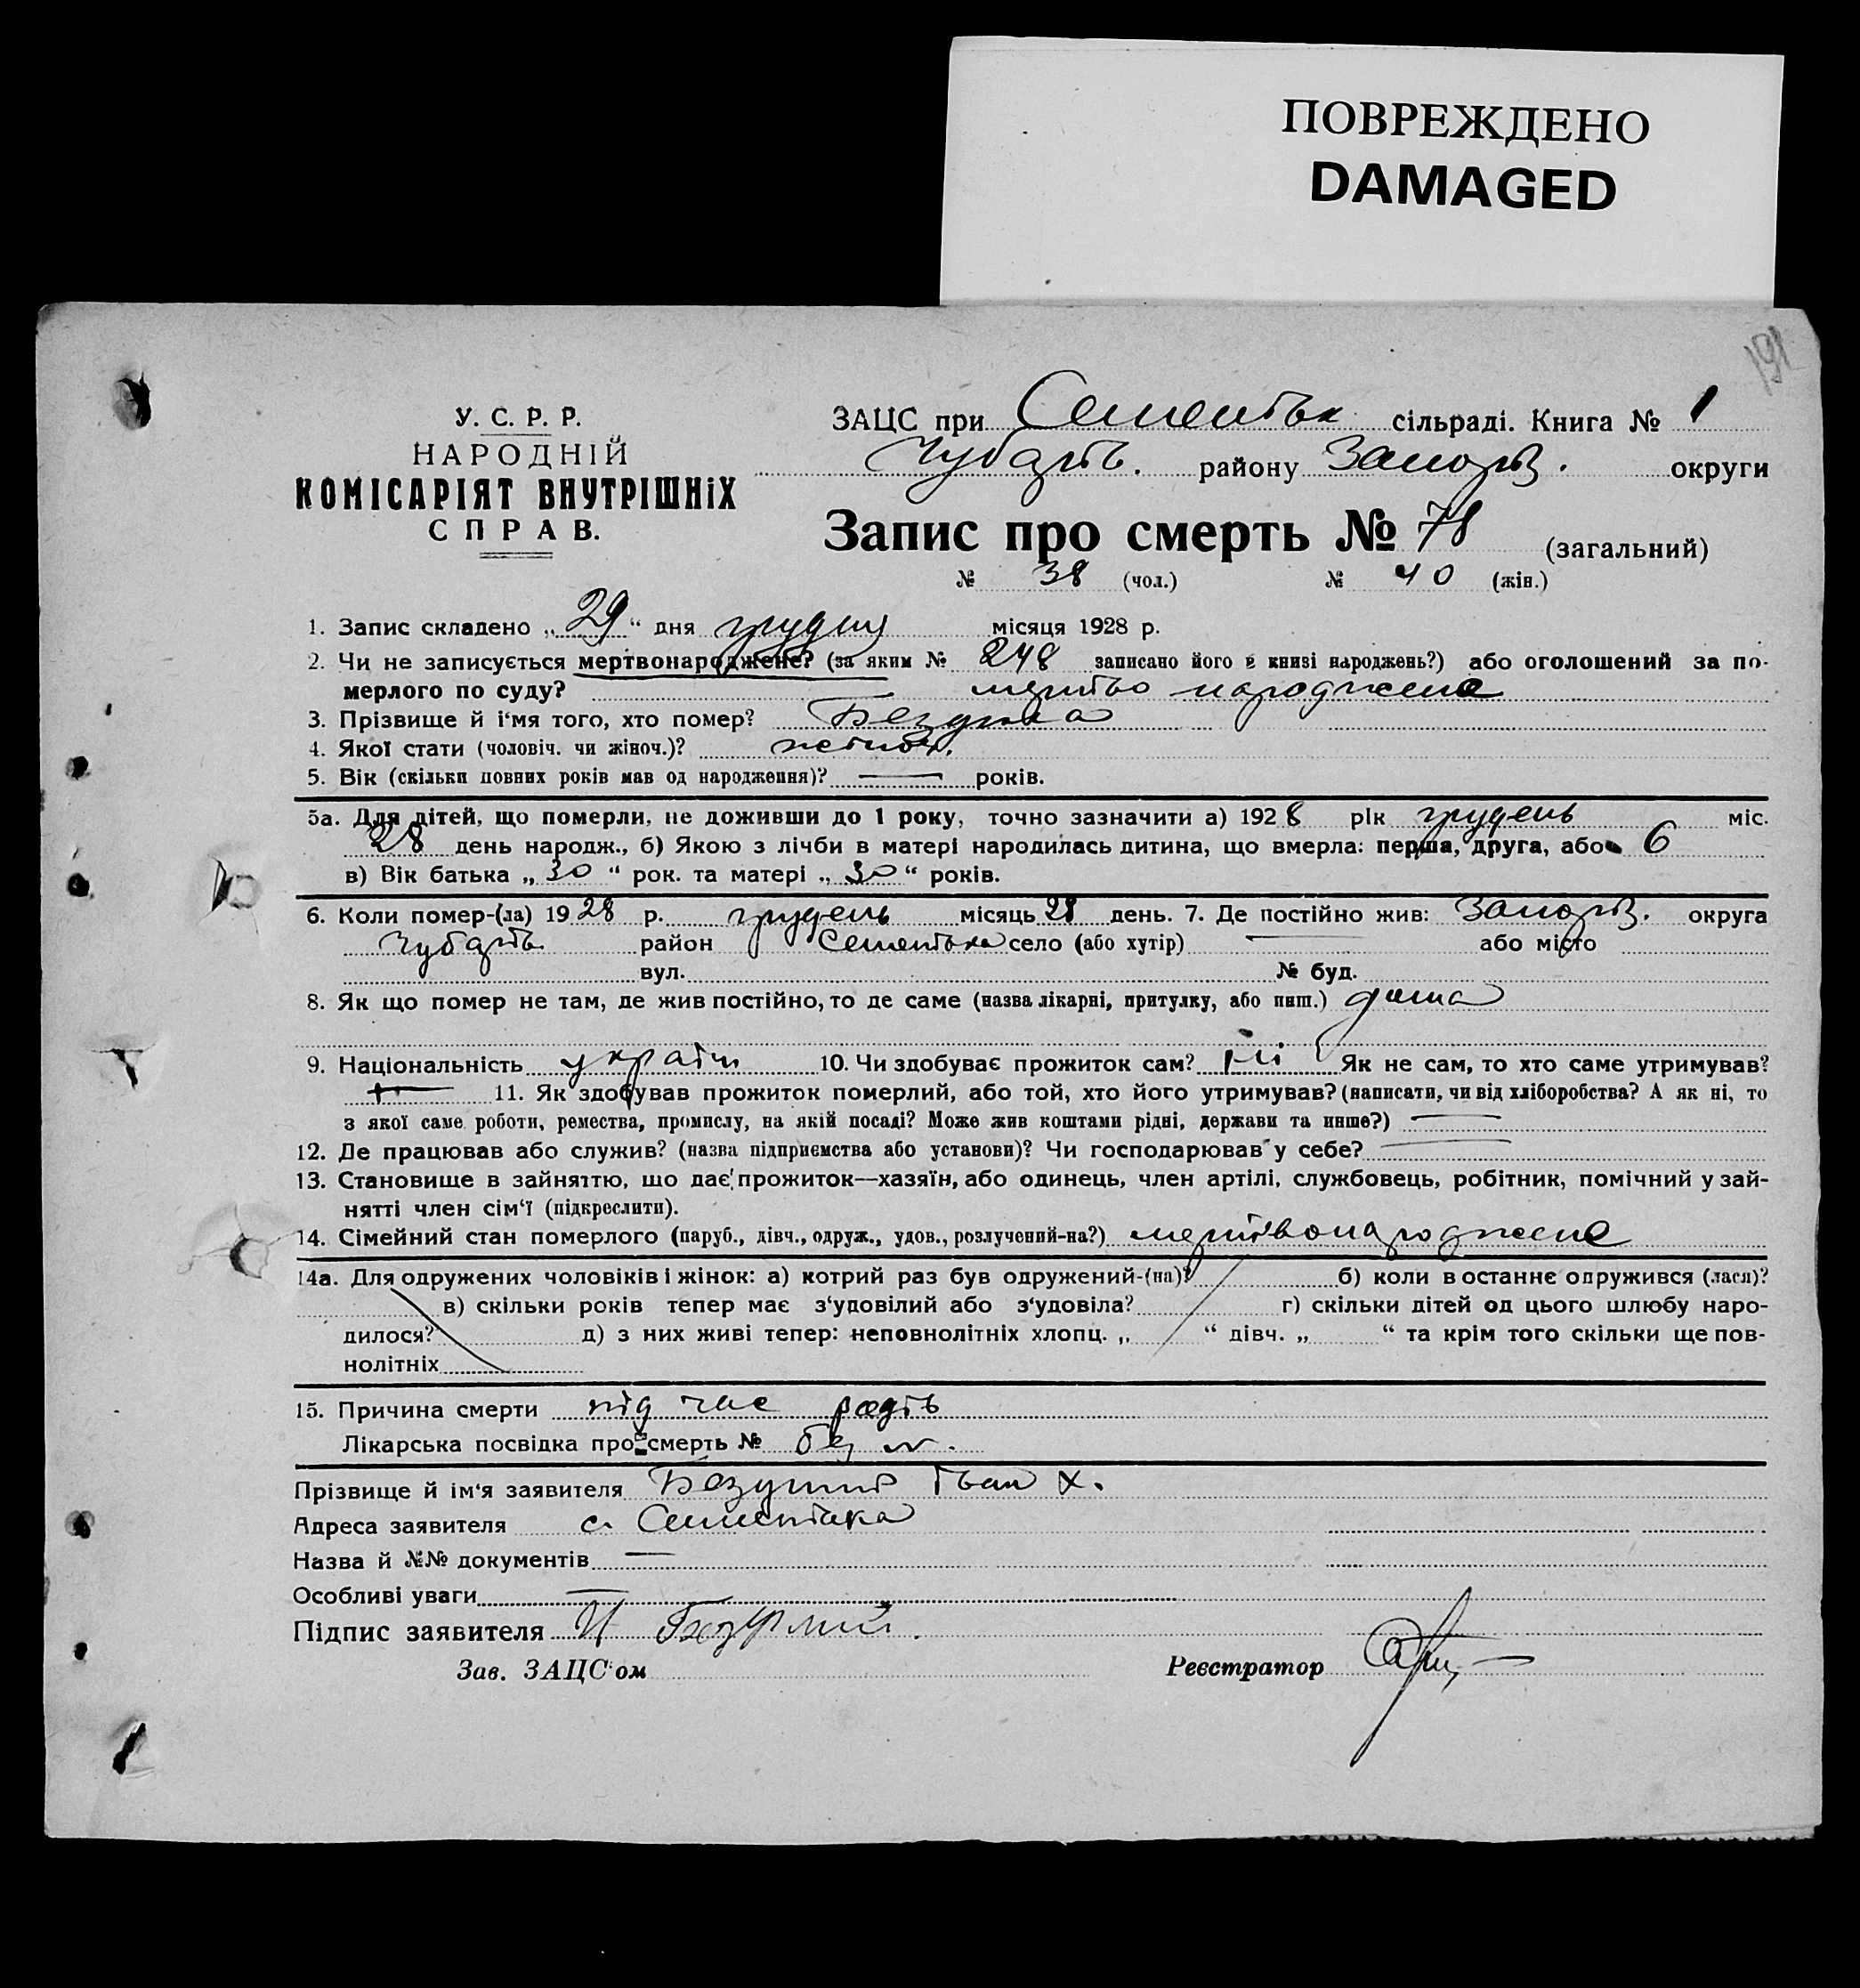 ПОВРЕЖДЕНО
DAMAGED
191
У. С. Р. Р.
НАРОДНІЙ
КОМІСАРІЯТ ВНУТРІШНІХ
СПРАВ.
ЗАЦС при Сементськ сільраді. Книга № 1
Чубарів. району Запоріз. округи
Запис про смерть № 78 (загальний)
№ 38 (чол.) № 40 (жін.)
1. Запис складено „29“ дня грудня місяця 1928 р.
2. Чи не записується мертвонароджене? (за яким № 248 записано його в книзі народжень?) або оголошений за по-
мерлого по суду? мертво народжена
3. Прізвище й і‘мя того, хто помер?
4. Якої стати (чоловіч. чи жіноч.)? жіноч.
5. Вік (скільки повних років мав од народження)? — років.
5а. Для дітей, що померли, не доживши до 1 року, точно зазначити а) 1928 рік грудень міс.
28 день народж., б) Якою з лічби в матері народилась дитина, що вмерла: перша, друга, або 6
в) Вік батька „30“ рок. та матері „30“ років.
6. Коли помер-(ла) 1928 р. грудень місяць 28 день. 7. Де постійно жив: Запоріз. округа
Чубарів. район село (або хутір) — або місто
вул. № буд.
8. Як що помер не там, де жив постійно, то де саме (назва лікарні, притулку, або инш.) дома
9. Національність україн 10. Чи здобуває прожиток сам? ні Як не сам, то хто саме утримував?
— 11. Як здобував прожиток померлий, або той, хто його утримував? (написати, чи від хліборобства? А як ні, то
з якої саме роботи, ремества, промислу, на якій посаді? Може жив коштами рідні, держави та инше?) —
12. Де працював або служив? (назва підприємства або установи)? Чи господарював у себе? —
13. Становище в зайняттю, що дає прожиток—хазяїн, або одинець, член артілі, службовець, робітник, помічний у зай-
нятті член сім‘ї (підкреслити).
14. Сімейний стан померлого (паруб., дівч., одруж., удов., розлучений-на?) мертвонароджене
14а. Для одружених чоловіків і жінок: а) котрий раз був одружений-(на)? б) коли в останнє одружився (лася)?
в) скільки років тепер має з‘удовілий або з‘удовіла? г) скільки дітей од цього шлюбу наро-
дилося? д) з них живі тепер: неповнолітніх хлопц. „ “ дівч. „ “ та крім того скільки ще пов-
нолітніх
15. Причина смерти під час родів
Лікарська посвідка про смерть № без №.
Прізвище й ім‘я заявителя Іван Х.
Адреса заявителя с.
Назва й №№ документів —
Особливі уваги —
Підпис заявителя И
Зав. ЗАЦС‘ом Реєстратор